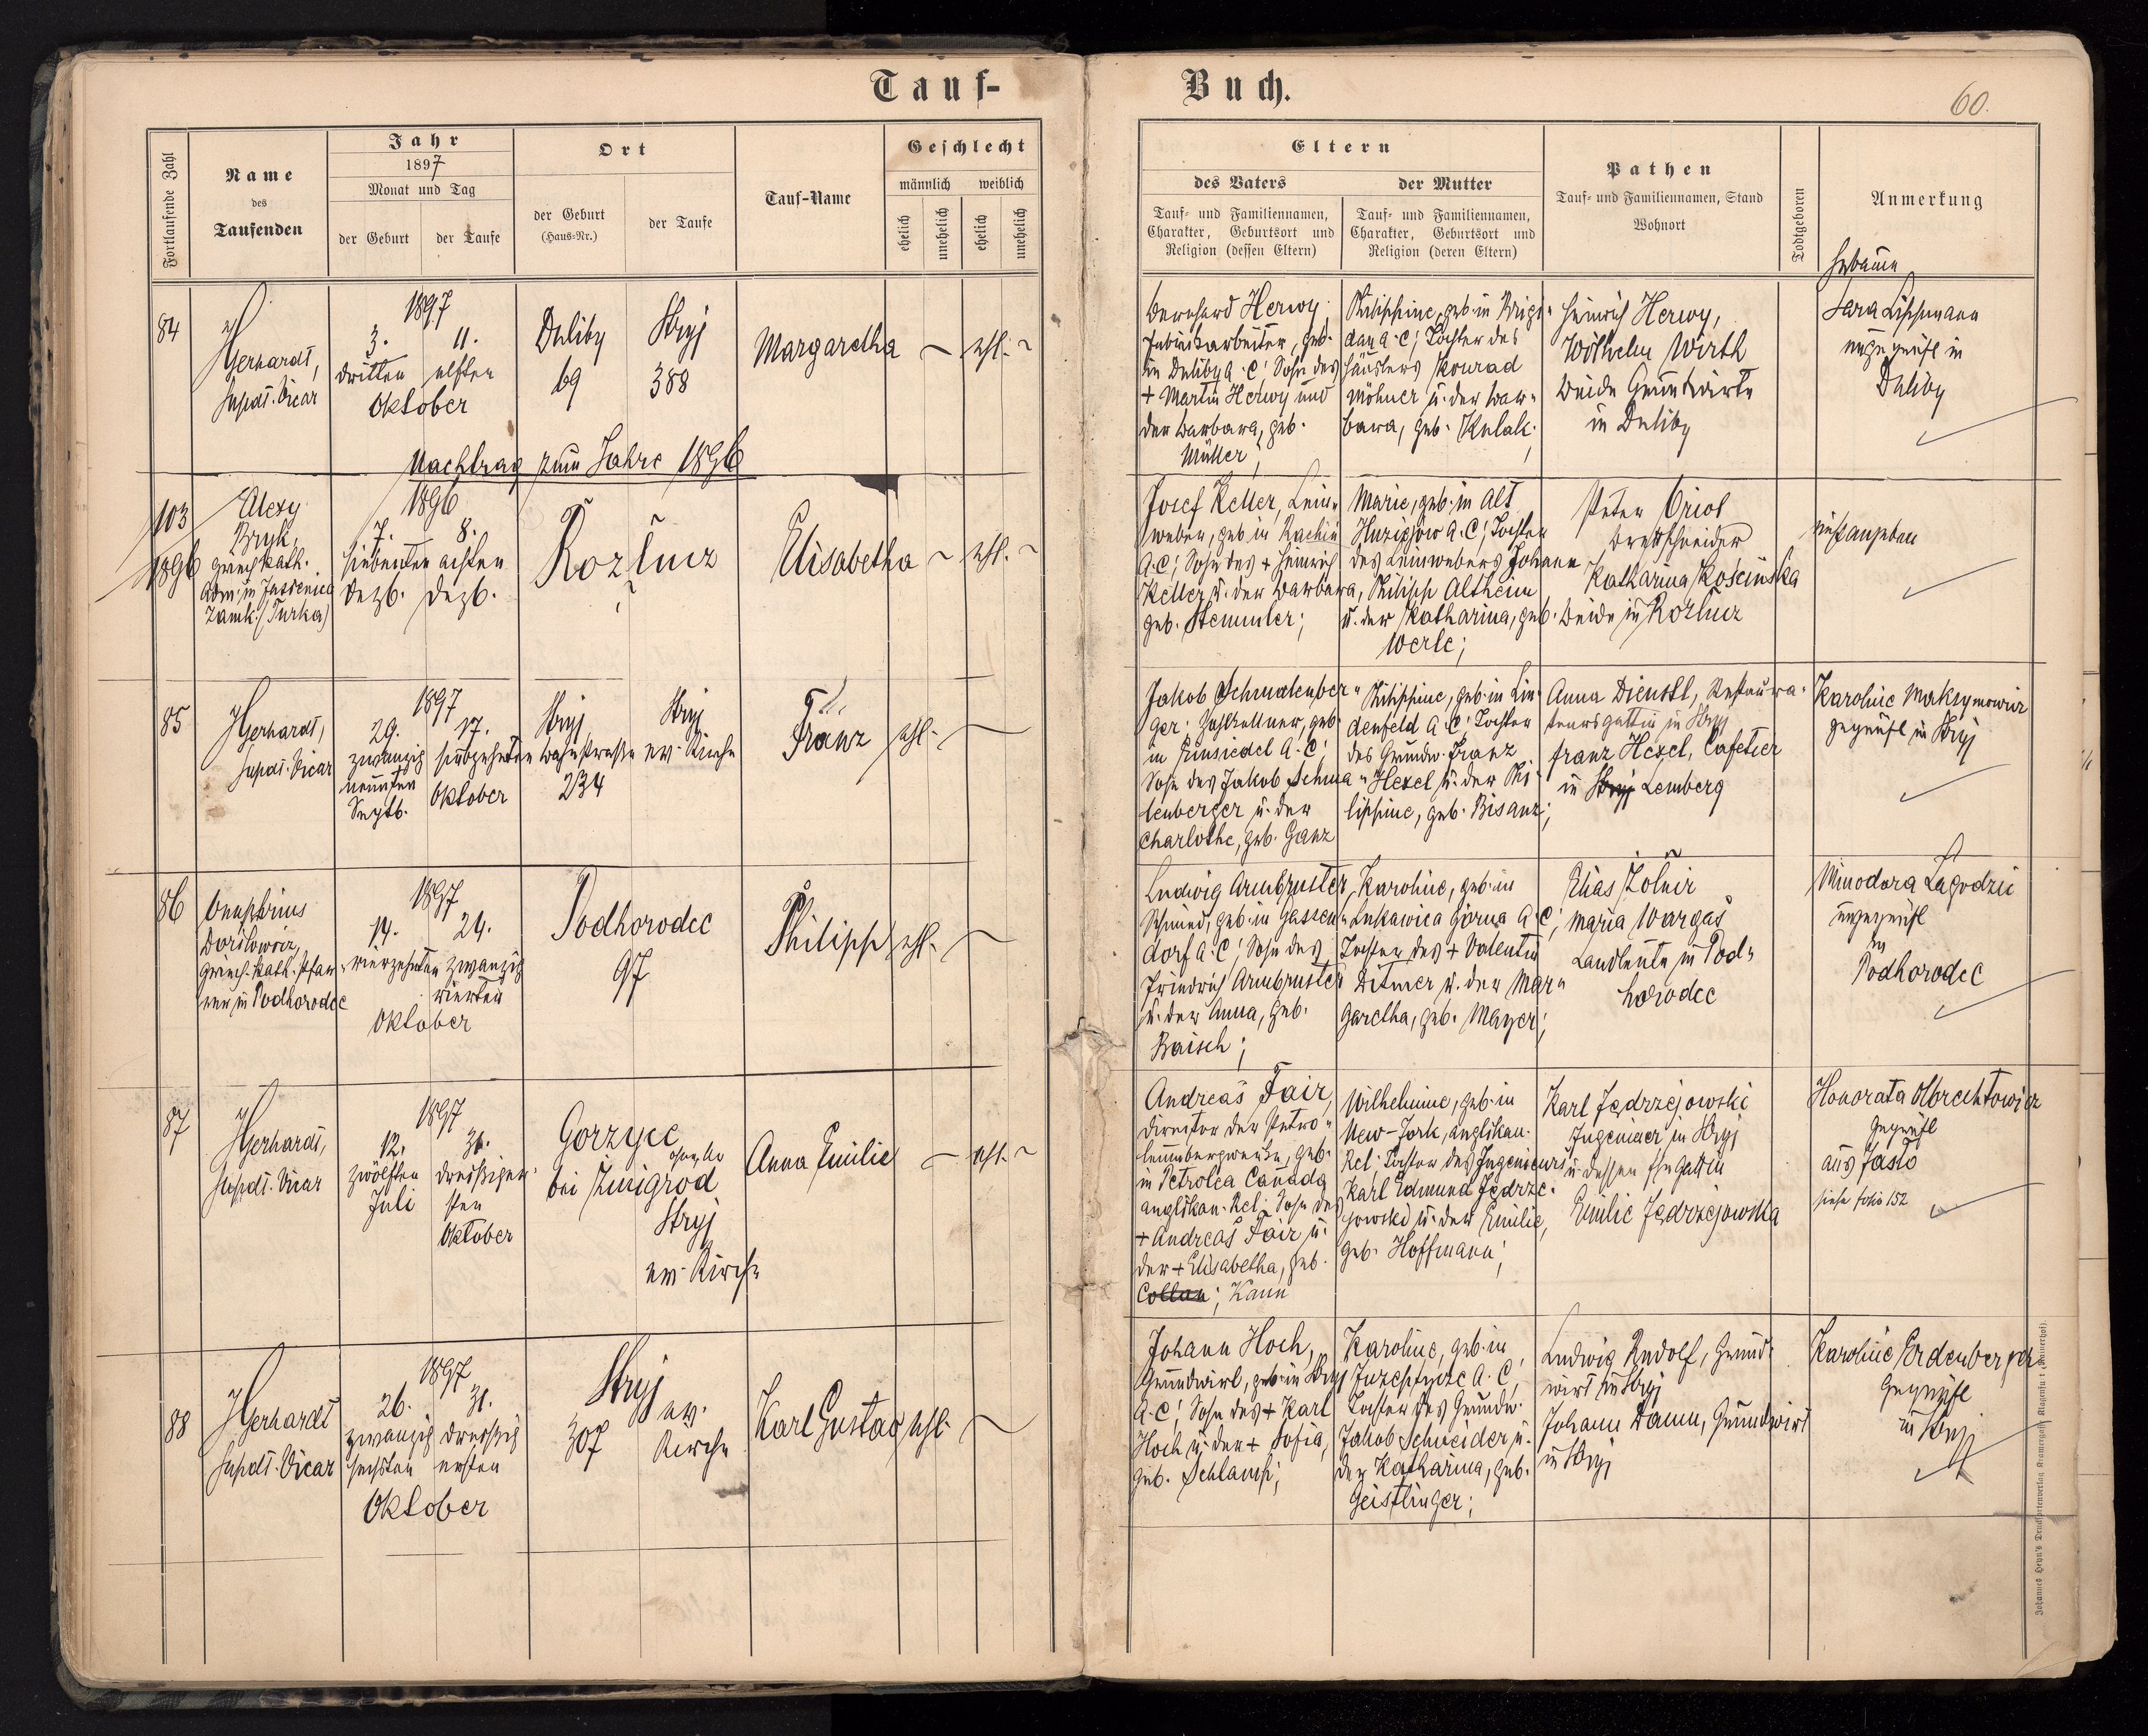 Tauf-
Buch.
60.
Fortlaufende Zahl
Name
des
Taufenden
Jahr
1897
Monat und Tag
der Geburt
der Taufe
Ort
der Geburt
(Haus-Nr.)
der Taufe
Tauf-Name
Geschlecht
männlich weiblich
ehelich
unehelich
ehelich
unehelich
Eltern
des Vaters
Tauf- und Familiennamen,
Charakter, Geburtsort und
Religion (dessen Eltern)
der Mutter
Tauf- und Familiennamen,
Charakter, Geburtsort und
Religion (deren Eltern)
Pathen
Tauf- und Familiennamen, Stand
Wohnort
Todtgeboren
Anmerkung
Hebamme
84
Gerhardt,
Supdt. Vicar
1897
3.
dritten
11.
elften
Oktober
Duliby
69
Stryj
388
Margaretha
~
ehl.
~
Bernhard Herwy,
Fabriksarbeiter, geb.
in Duliby A.C; Sohn des
+ Martin Herwy und
der Barbara, geb.
Müller;
Philippine, geb. in Brigi-
dau A.C; Tochter des
Häuslers Konrad
Möhner u. der Bar-
bara, geb. Kulak;
Heinrich Herwy,
Wilhelm Wirth
beide Grundwirte
in Duliby
Sara Lippmann
ungeprüft in
Duliby
Nachtrag zum Jahre 1896
103
1896
Alexy
Bryk,
griech. kath.
Adm. in Jasienica
Zamk. (Turka)
1896
7.
siebenten
Dezb.
8.
achten
Dezb.
Rozlucz
Elisabetha
~
ehl.
~
Josef Keller, Lein-
weber, geb. in Rachin
A.C; Sohn des + Heinrich
Keller u. der Barbara,
geb. Stemmler;
Marie, geb. in Alt
Huzigow A.C; Tochter
des Leinwebers Johann
Philipp Altheim
u. der Katharina, geb.
Werle;
Peter Oriol
Brettschneider
Katharina Kościńska
beide in Rozlucz
nicht angegeben
85
Gerhardt,
Supdt. Vicar
1897
29.
zwanzig
neunten
Septb.
17.
siebzehnten
Oktober
Stryj
Bahnstrasse
234
Stryj
ev. Kirche
Franz
ehl.
~
Jakob Schmalenber-
ger, Zahlkellner, geb.
in Einsiedel A.C;
Sohn des Jakob Schma-
lenberger u. der
Charlotte, geb. Ganz
Philippine, geb. in Lin-
denfeld A.C; Tochter
des Grundw. Franz
Hexel u. der Phi-
lippine, geb. Bisanz;
Anna Dienstl, Restaura-
teursgattin in Stryj
Franz Hexel, Cafetier
in Stryj Lemberg
Karoline Maksymowicz
geprüft in Stryj
86
Onuphrius
griech. kath. Pfar-
rer in Podhorodec
1897
14.
vierzehnten
24.
zwanzig
vierten
Oktober
Podhorodec
97
Philipp
ehl.
~
Ludwig Armbruster,
Schmied, geb. in Gassen-
dorf A.C; Sohn des
Friedrich Armbruster
u. der Anna, geb.
Baisch;
Karoline, geb. in
Lukawica Górna A.C;
Tochter des + Valentin
Ditmer u. der Mar-
garetha, geb. Mayer;
Elias Žolnir
Maria Wargaš
Landleute in Pod-
horodec
Minodora Lagodzic
ungeprüft
in
Podhorodec
87
Gerhardt,
Supdt. Vicar
1897
12.
zwölften
Juli
30.
dreissig-
sten
Oktober
Gorzyce
bei Zmigrod
Stryj
ev. Kirche
Anna Emilie
~
ehl.
~
Andreas Fair,
Direktor der Petro-
leumbergwerke, geb.
in Petrolea Canada
anglikan. Rel; Sohn des
+ Andreas Fair u.
der + Elisabetha, geb.
Collan; Kann
Wilhelmine, geb. in
New-York, anglikan.
Rel. Tochter des Ingenieurs
Karl Edmund Jędrze-
jowski u. der Emilie,
geb. Hoffmann;
Karl Jędrzejowski
Ingenieur in Stryj
u. dessen Ehegattin
Emilie Jędrzejowska
Honorata Olbrechtowicz
geprüft
aus Jasło
siehe folio 152
88
Gerhardt
Supdt. Vicar
1897
26.
zwanzig
sechsten
31.
dreissig
ersten
Oktober
Stryj
307
ev.
Kirche
Karl Gustav
ehl.
~
Johann Hoch,
Grundwirt, geb. in Stryj
A.C; Sohn des + Karl
Hoch u. der + Sofia,
geb. Schlamp;
Karoline, geb. in
Juzeptycze A.C;
Tochter des Grundw.
Jakob Schneider u.
der Katharina, geb.
Geistlinger;
Ludwig Rudolf, Grund-
wirt in Stryj
Johann Damm, Grundwirt
in Stryj
Karoline Erdenberger
geprüft
in Stryj